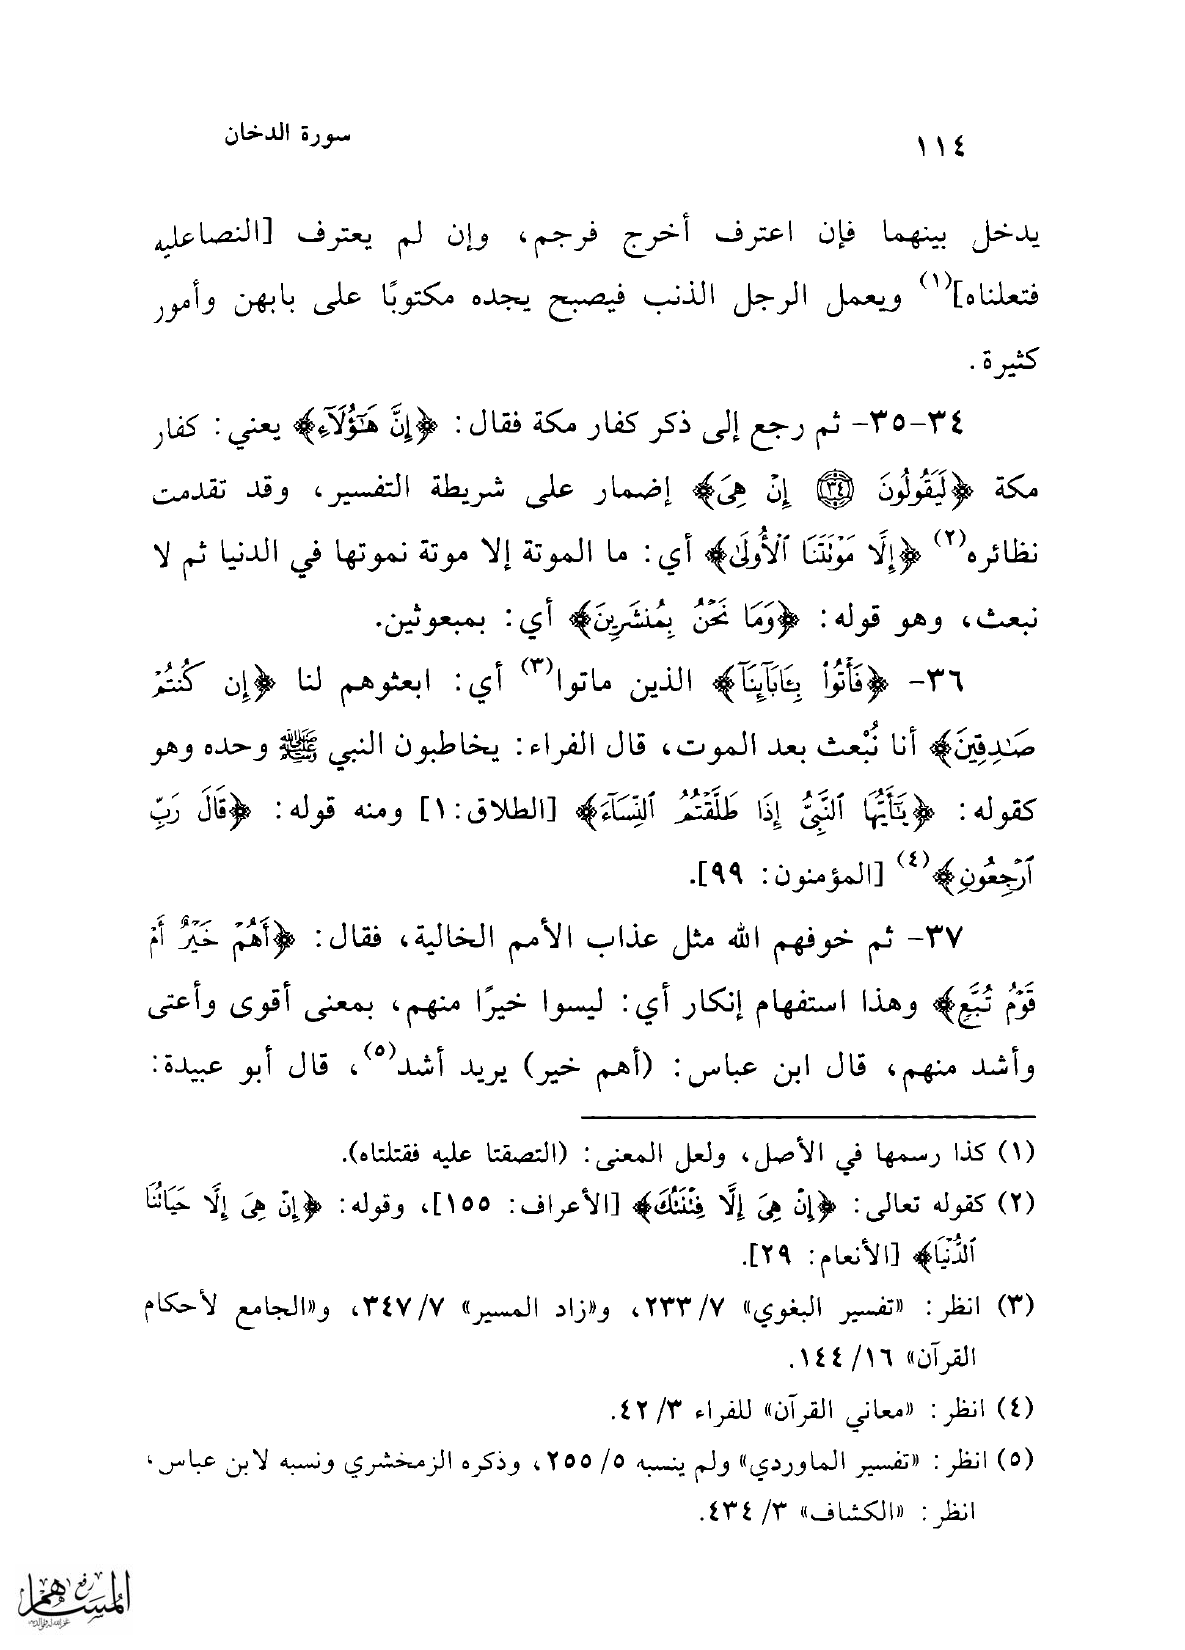 ١١٤
سورة الدخان
يدخل بينهما فإن اعترف أخرج فرجم، وإن لم يعترف [النصاعليه
فتعلناه]⁽١⁾ ويعمل الرجل الذنب فيصبح يجده مكتوبًا على بابهن وأمور
كثيرة.
٣٤-٣٥- ثم رجع إلى ذكر كفار مكة فقال: ﴿إِنَّ هَٰٓؤُلَآءِ﴾ يعني: كفار
مكة ﴿لَيَقُولُونَ ٣٤ إِنْ هِىَ﴾ إضمار على شريطة التفسير، وقد تقدمت
نظائره⁽٢⁾ ﴿إِلَّا مَوْتَتُنَا ٱلْأُولَىٰ﴾ أي: ما الموتة إلا موتة نموتها في الدنيا ثم لا
نبعث، وهو قوله: ﴿وَمَا نَحْنُ بِمُنشَرِينَ﴾ أي: بمبعوثين.
٣٦- ﴿فَأْتُوا۟ بِـَٔابَآئِنَآ﴾ الذين ماتوا⁽٣⁾ أي: ابعثوهم لنا ﴿إِن كُنتُمْ
صَٰدِقِينَ﴾ أنا نُبْعث بعد الموت، قال الفراء: يخاطبون النبي ﷺ وحده وهو
كقوله: ﴿يَٰٓأَيُّهَا ٱلنَّبِىُّ إِذَا طَلَّقْتُمُ ٱلنِّسَآءَ﴾ [الطلاق:١] ومنه قوله: ﴿قَالَ رَبِّ
ٱرْجِعُونِ﴾⁽٤⁾ [المؤمنون: ٩٩].
٣٧- ثم خوفهم الله مثل عذاب الأمم الخالية، فقال: ﴿أَهُمْ خَيْرٌ أَمْ
قَوْمُ تُبَّعٍ﴾ وهذا استفهام إنكار أي: ليسوا خيرًا منهم، بمعنى أقوى وأعتى
وأشد منهم، قال ابن عباس: (أهم خير) يريد أشد⁽٥⁾، قال أبو عبيدة:
(١) كذا رسمها في الأصل، ولعل المعنى: (التصقتا عليه فقتلتاه).
(٢) كقوله تعالى: ﴿إِنْ هِىَ إِلَّا فِتْنَتُكَ﴾ [الأعراف: ١٥٥]، وقوله: ﴿إِنْ هِىَ إِلَّا حَيَاتُنَا
ٱلدُّنْيَا﴾ [الأنعام: ٢٩].
(٣) انظر: «تفسير البغوي» ٧/ ٢٣٣، و«زاد المسير» ٧/ ٣٤٧، و«الجامع لأحكام
القرآن» ١٦/ ١٤٤.
(٤) انظر: «معاني القرآن» للفراء ٣/ ٤٢.
(٥) انظر: «تفسير الماوردي» ولم ينسبه ٥/ ٢٥٥، وذكره الزمخشري ونسبه لابن عباس،
انظر: «الكشاف» ٣/ ٤٣٤.